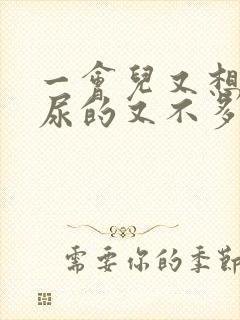 一會兒又想
尿的又不多
需要你的季節